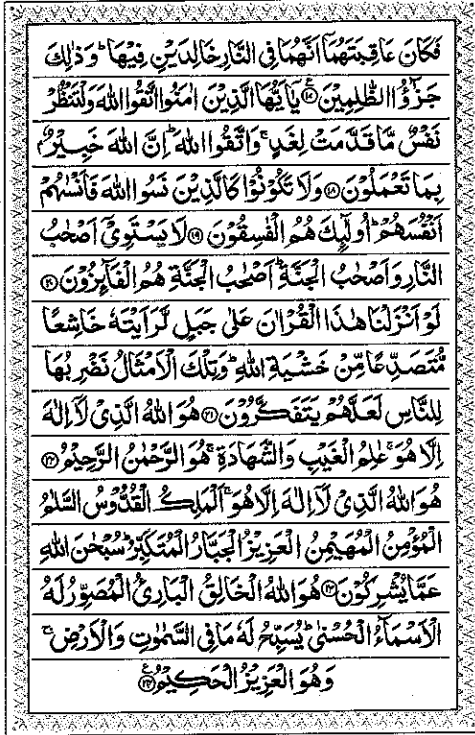 فَكَانَ عَاقِبَتَهُمَاۤ اَنَّهُمَا فِى النَّارِ خَالِدَيْنِ فِيْهَا ؕ وَذٰلِكَ
جَزٰٓؤُا الظّٰلِمِيْنَ ﴿۱۷﴾ يٰۤاَيُّهَا الَّذِيْنَ اٰمَنُوا اتَّقُوا اللّٰهَ وَلْتَنْظُرْ
نَفْسٌ مَّا قَدَّمَتْ لِغَدٍ ۚ وَاتَّقُوا اللّٰهَ ؕ اِنَّ اللّٰهَ خَبِيْرٌۢ
بِمَا تَعْمَلُوْنَ ﴿۱۸﴾ وَلَا تَكُوْنُوْا كَالَّذِيْنَ نَسُوا اللّٰهَ فَاَنْسٰىهُمْ
اَنْفُسَهُمْ ؕ اُولٰٓئِكَ هُمُ الْفٰسِقُوْنَ ﴿۱۹﴾ لَا يَسْتَوِىْۤ اَصْحٰبُ
النَّارِ وَاَصْحٰبُ الْجَنَّةِ ؕ اَصْحٰبُ الْجَنَّةِ هُمُ الْفَآئِزُوْنَ ﴿۲۰﴾
لَوْ اَنْزَلْنَا هٰذَا الْقُرْاٰنَ عَلٰى جَبَلٍ لَّرَاَيْتَهٗ خَاشِعًا
مُّتَصَدِّعًا مِّنْ خَشْيَةِ اللّٰهِ ؕ وَتِلْكَ الْاَمْثَالُ نَضْرِبُهَا
لِلنَّاسِ لَعَلَّهُمْ يَتَفَكَّرُوْنَ ﴿۲۱﴾ هُوَ اللّٰهُ الَّذِىْ لَاۤ اِلٰهَ
اِلَّا هُوَ ۚ عٰلِمُ الْغَيْبِ وَالشَّهَادَةِ ۚ هُوَ الرَّحْمٰنُ الرَّحِيْمُ ﴿۲۲﴾
هُوَ اللّٰهُ الَّذِىْ لَاۤ اِلٰهَ اِلَّا هُوَ ۚ اَلْمَلِكُ الْقُدُّوْسُ السَّلٰمُ
الْمُؤْمِنُ الْمُهَيْمِنُ الْعَزِيْزُ الْجَبَّارُ الْمُتَكَبِّرُ ؕ سُبْحٰنَ اللّٰهِ
عَمَّا يُشْرِكُوْنَ ﴿۲۳﴾ هُوَ اللّٰهُ الْخَالِقُ الْبَارِئُ الْمُصَوِّرُ لَهُ
الْاَسْمَآءُ الْحُسْنٰى ؕ يُسَبِّحُ لَهٗ مَا فِى السَّمٰوٰتِ وَالْاَرْضِ ۚ
وَهُوَ الْعَزِيْزُ الْحَكِيْمُ ﴿۲۴﴾